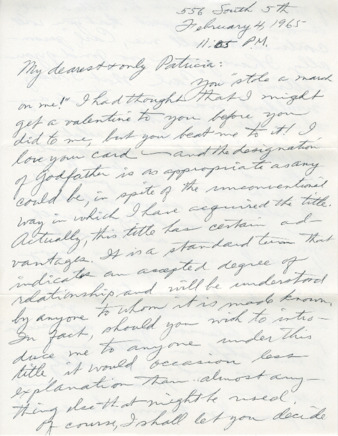 556 South 5th
February 4, 1965
11:05 P.M.
My dearest & only Patricia:
You "stole a march
on me!" I had thought that I might
get a valentine to you before you
did to me, but you beat me to it! I
love your card — and the designation
of Godfather is as appropriate as any
could be, in spite of the unconventional
way in which I have acquired the title.
Actually, this title has certain ad-
vantages. It is a standard term that
indicates an accepted degree of
relationship and will be understood
by anyone to whom it is made known.
In fact, should you wish to intro-
duce me to anyone under this
title it would occasion less
explanation than almost any-
thing else that might be used.
Of course, I shall let you decide